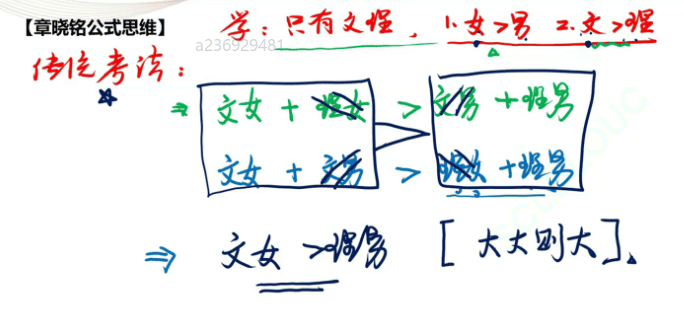 【章晓铭公式思维】
学：只有文理， 1.女>男 2.文>理
a236929481
传统考法：
⇒ 文女 + 理女 > 文男 + 理男
文女 + 文男 > 理女 + 理男
⇒ 文女 > 理男 [大大则大]。